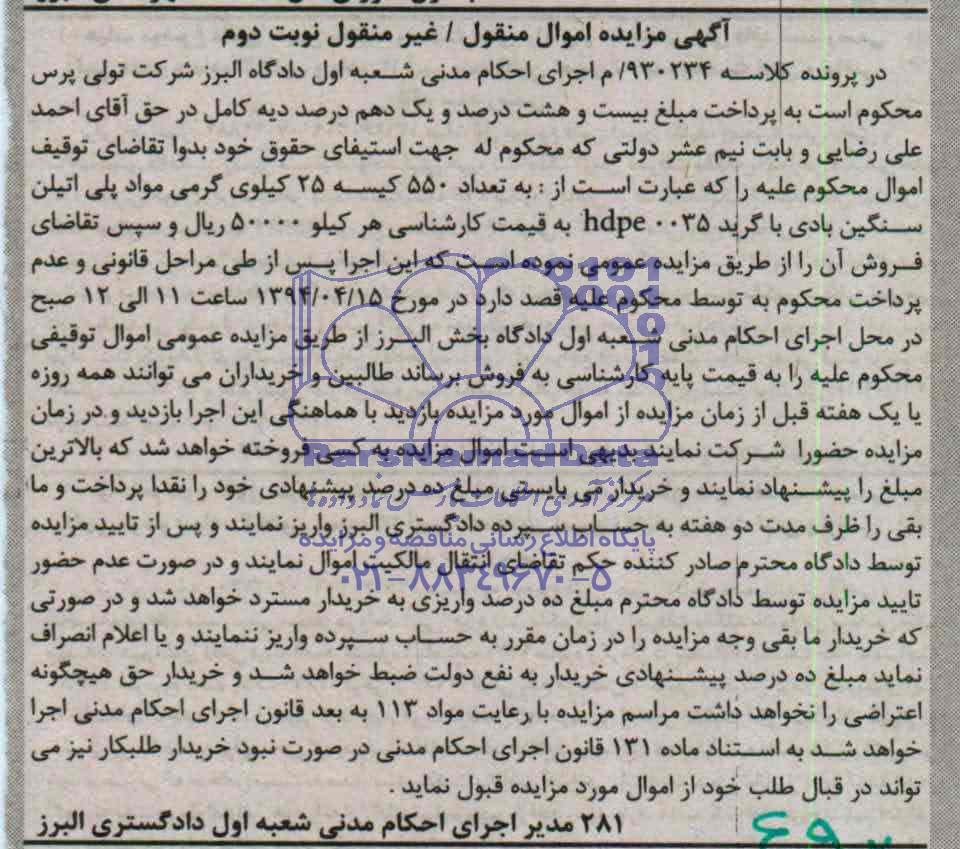 آگهی مزایده اموال منقول / غیر منقول نوبت دوم
در پرونده کلاسه ۹۳۰۲۳۴/ م اجرای احکام مدنی شعبه اول دادگاه البرز شرکت تولی پرس
محکوم است به پرداخت مبلغ بیست و هشت درصد و یک دهم درصد دیه کامل در حق آقای احمد
علی رضایی و بابت نیم عشر دولتی که محکوم له جهت استیفای حقوق خود بدوا تقاضای توقیف
اموال محکوم علیه را که عبارت است از : به تعداد ۵۵۰ کیسه ۲۵ کیلوی گرمی مواد پلی اتیلن
سنگین بادی با گرید ۰۰۳۵ hdpe به قیمت کارشناسی هر کیلو ۵۰۰۰۰ ریال و سپس تقاضای
فروش آن را از طریق مزایده عمومی نموده است که این اجرا پس از طی مراحل قانونی و عدم
پرداخت محکوم به توسط محکوم علیه قصد دارد در مورخ ۱۳۹۴/۰۴/۱۵ ساعت ۱۱ الی ۱۲ صبح
در محل اجرای احکام مدنی شعبه اول دادگاه بخش البرز از طریق مزایده عمومی اموال توقیفی
محکوم علیه را به قیمت پایه کارشناسی به فروش برساند طالبین و خریداران می توانند همه روزه
یا یک هفته قبل از زمان مزایده از اموال مورد مزایده بازدید با هماهنگی این اجرا بازدید و در زمان
مزایده حضورا شرکت نمایند بدیهی است اموال مزایده به کسی فروخته خواهد شد که بالاترین
مبلغ را پیشنهاد نمایند و خریدار می بایستی مبلغ ده درصد پیشنهادی خود را نقدا پرداخت و ما
بقی را ظرف مدت دو هفته به حساب سپرده دادگستری البرز واریز نمایند و پس از تایید مزایده
توسط دادگاه محترم صادر کننده حکم تقاضای انتقال مالکیت اموال نمایند و در صورت عدم حضور
تایید مزایده توسط دادگاه محترم مبلغ ده درصد واریزی به خریدار مسترد خواهد شد و در صورتی
که خریدار ما بقی وجه مزایده را در زمان مقرر به حساب سپرده واریز ننمایند و یا اعلام انصراف
نماید مبلغ ده درصد پیشنهادی خریدار به نفع دولت ضبط خواهد شد و خریدار حق هیچگونه
اعتراضی را نخواهد داشت مراسم مزایده با رعایت مواد ۱۱۳ به بعد قانون اجرای احکام مدنی اجرا
خواهد شد به استناد ماده ۱۳۱ قانون اجرای احکام مدنی در صورت نبود خریدار طلبکار نیز می
تواند در قبال طلب خود از اموال مورد مزایده قبول نماید .
۲۸۱ مدیر اجرای احکام مدنی شعبه اول دادگستری البرز
ParsNamadData
پایگاه اطلاع رسانی مناقصه و مزایده
۰۲۱-۸۸۳۴۹۶۷۰-۵